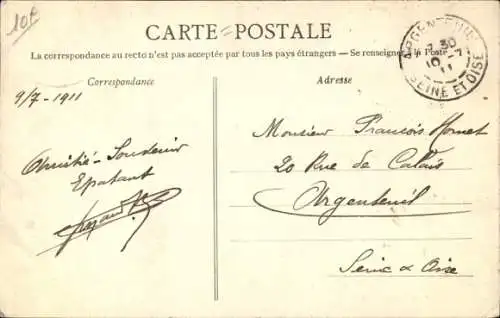 10f
CARTE = POSTALE
La correspondance au recto n'est pas acceptée par tous les pays étrangers — Se renseigner à la Poste
ARGENTEUIL
7 30
9 - 7
11
SEINE ET OISE
Correspondance
Adresse
9/7 - 1911
Monsieur Francois Hornet
Amitié - Souvenir
20 Rue de Calais
Epatant
Argenteuil
Seine & Oise